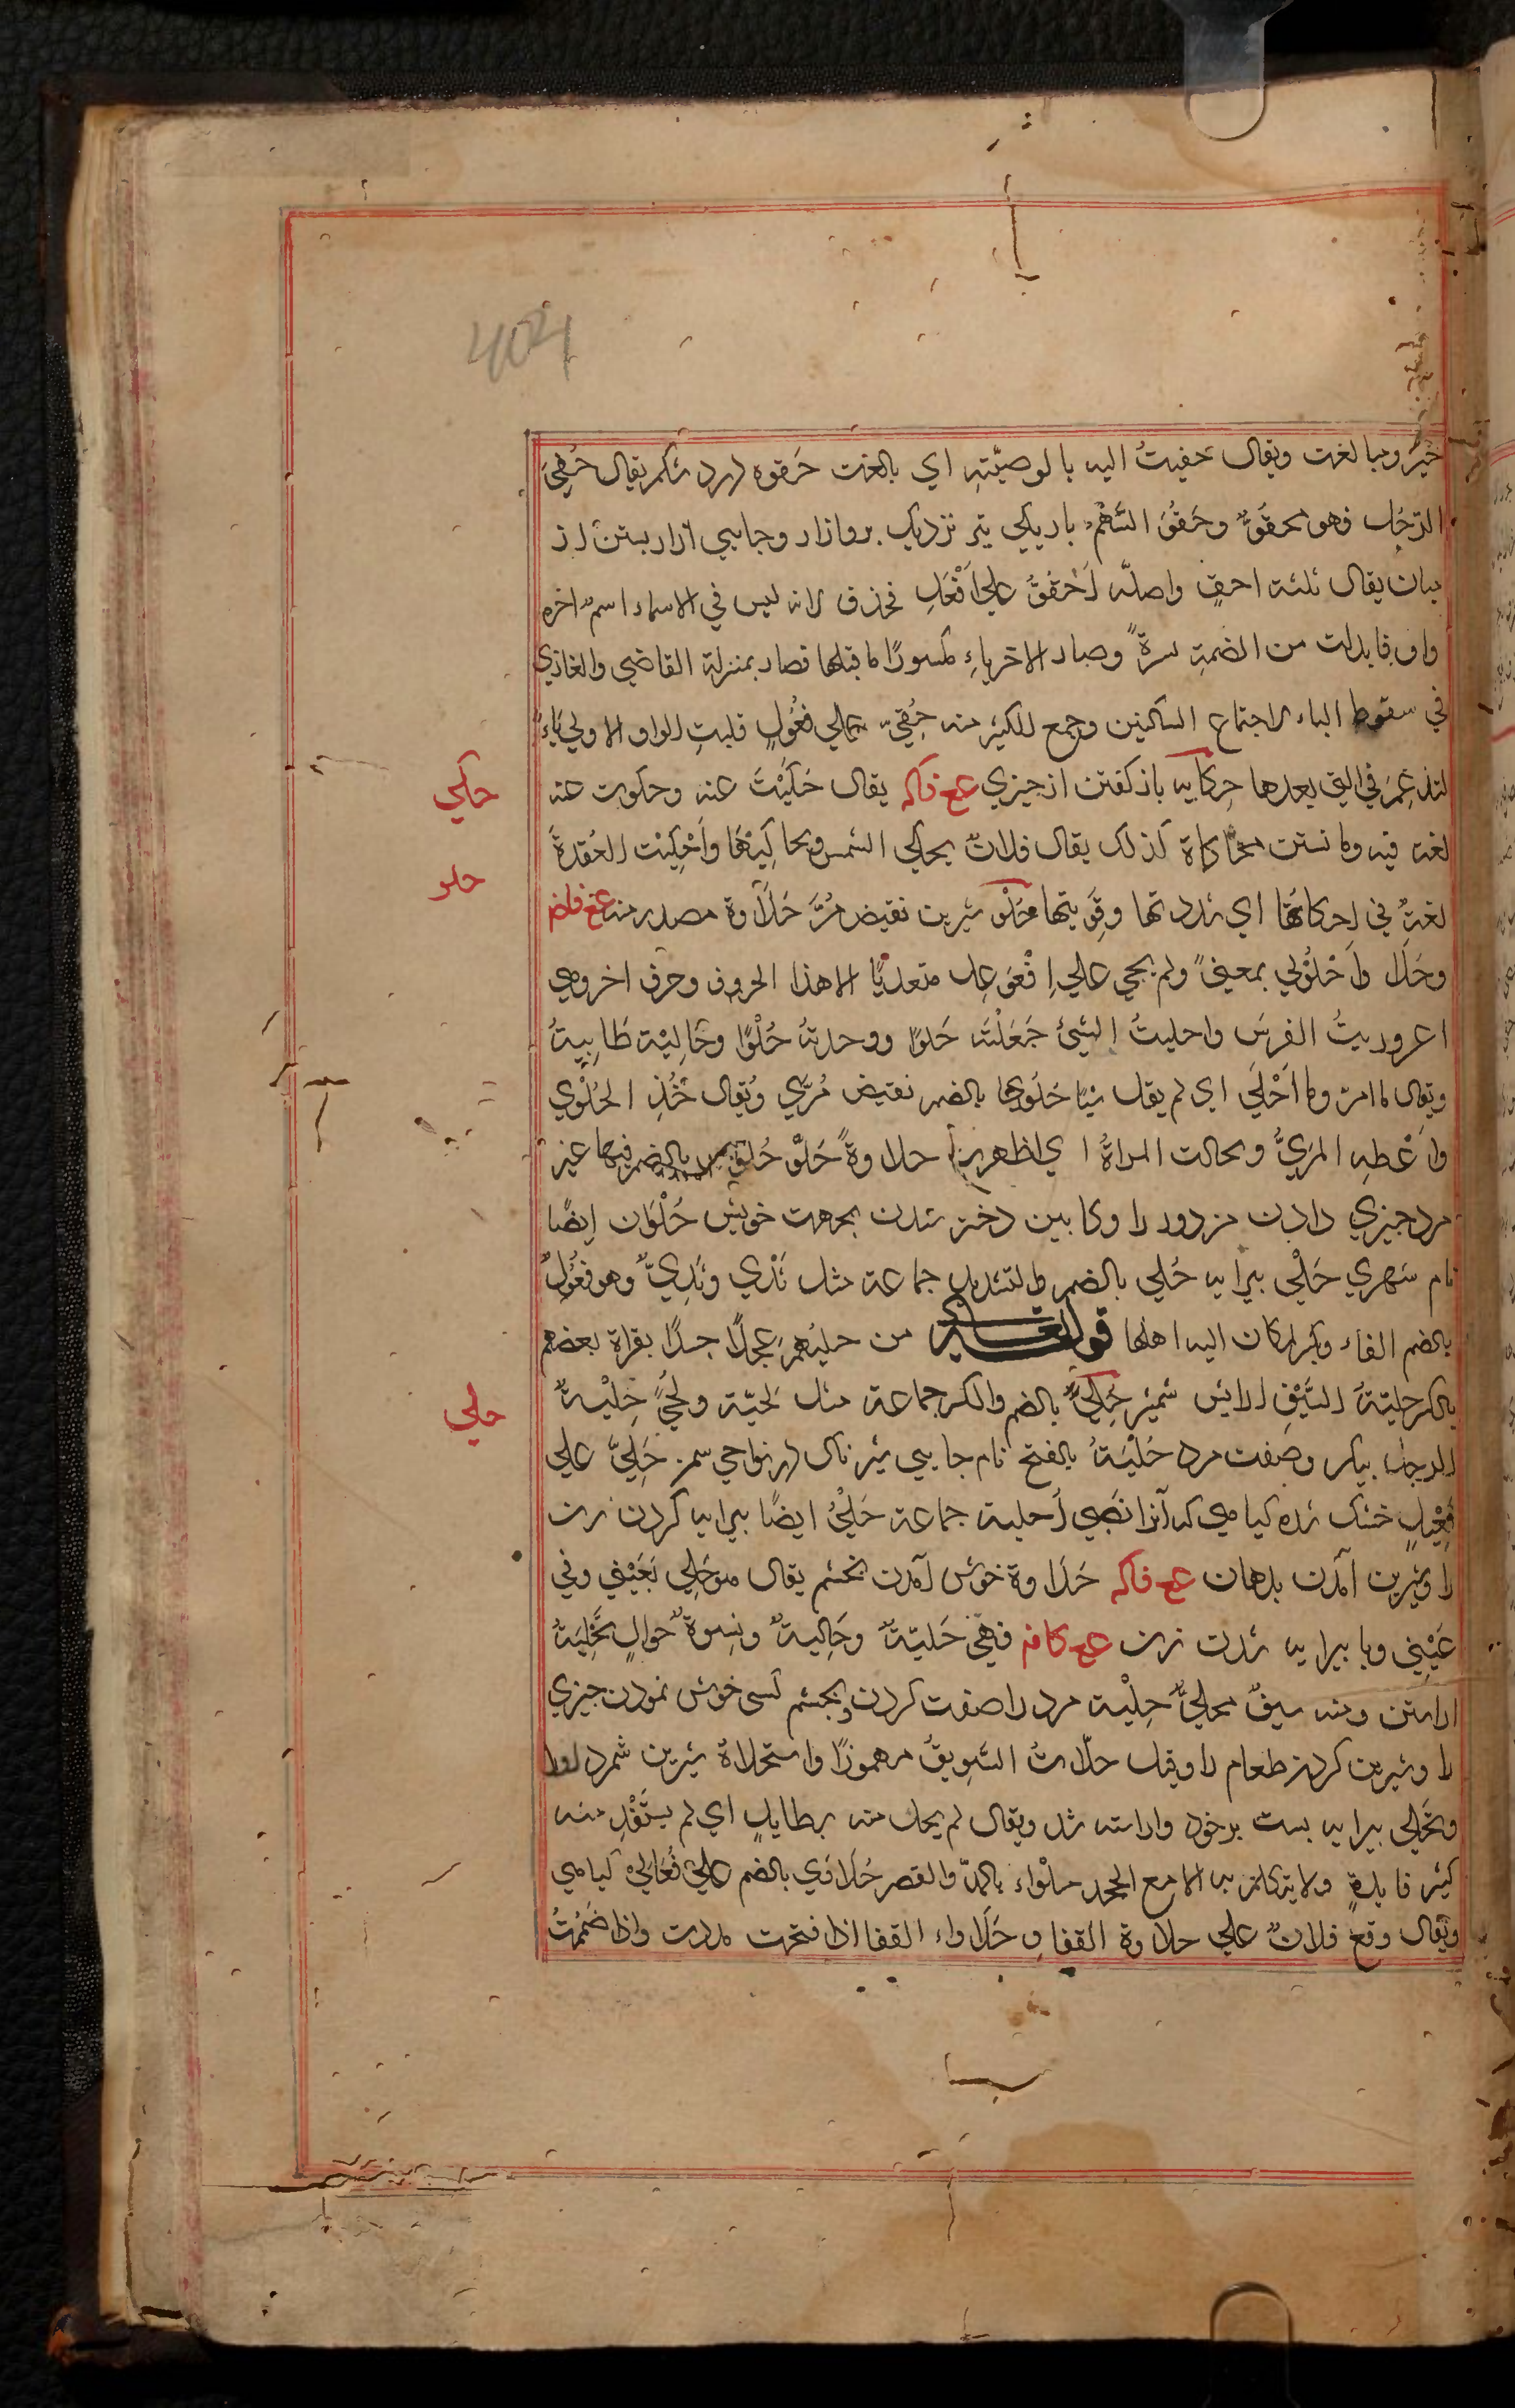 404
خيرٌ ومبا لغت ويقال حفيتُ اليه با لوصيّتهِ اي بالغت حَقوه درد شكم يقال حُقِيَ
الرّجُل فهو محقوٌّ وحَقْوُ السَّهْمِ باريكي تير نزديك بر وازار وجايي ازار بستن از
ميان يقال ثلثة احقٍ واصلّه اَحْقُوٌ علي اَفْعُلٍ فحذف لانه ليس في الاسماء اسمٌ اخره
واو فابدلت من الضمةِ كسرةً وصار الاخر ياءِ مكسورًا ما قبلها فصار بمنزلة القاضي والغازي
في سقوط الياء لاجتماع الساكنين وجمع للكثير منه حُقِيٌّ علي فُعُولٍ قلبتِ الواو الاولي يَاءً
لتدغم في التي بعدها حِكايه باز كفتن از چيزي عع فاكه يقال حَكَيْتَ عنه وحكوت عنه
حكي
لغة فيه وما نستن محاكاة كذلك يقال فلانٌ يحكي الشمس ويحاكيهَا وَاَحْكيْت العُقدةَ
حلو
لغةٌ في احكاتهَا اي شددتها وقوّيتها حُلْو شيرين نقيض مُرّ حَلاَوة مصدر منه عغ فاضم
وحَلَا وَاحْلَوْلي بمعنيً ولم يجي علي اِفْعَوعل متعديًا الا هذا الحروف وحرف اخر وهي
اعروريتُ الفرسَ واحليتُ الشيئ جَعَلْتَه حَلوًا ووجدتهُ حُلْوًا وحَاليْتهُ طَايبتهُ
ويقال ما امرّ وما اَحْلَي اي لم يقل شيًا حَلْوي بالضم نقيض مُرّي وُيقال خُذِ الحُلْوي
وَاَعْطِهِ المُرّيّ وتحالت المراةُ اي اظهرت حلاوةً حَلْو حُلوَان بالضم فيهما عير
مرد چيزي دادن مزدور را وكابين دختر شدن بجهت خويش حُلْوَان ايضًا
نام شهري حَلْي پيرايه حُلي بالضم والتشديد جماعة مثل ثَدْي وثُدِيّ وهو فُعُولٌ
بالضم الفاء وبكسر كان اليه اهلها قوله تعالي من حليهم عجلًا جسدًا بقراة بعضهم
بالكسر حليَةُ السّيْفِ ارايش شمشير حُلِيٌّ بالضم والكسر جماعة مثل لحيَة ولُحيً حِلْيةُ
حلي
الرجل پيكر وصفت مرد حَلْيَةُ بالفتح نام جايي شير ناك در نواحي سمن حَلِيّ علي
فَعِيْلٍ خشك شده كياهي كه آنرا نَصِي اَحلية جماعة حَلْيُ ايضًا پيرايه كردن زن
را وشيرين آمدن بدهان عع فاكه حَلَاوة خوش آمدن بچشم يقال هو حَلِي بَعَيْني وفي
عَيْنِي وبا پيرايه شدن زن عع كافه فهي حَليَةٌ وحَالِيةٌ ونِسوةٌ حوالٍ تَحْلِيَةٌ
اراستن ومنه سيفٌ محليٌّ حِلْية مرد را صفت كردن وبچشم كسي خوش نمودن چيزي
را وشيرين كردن طعام را وقيل حلّاتُ السَّوِيقُ مهموزًا واستحلاةُ شيرين شمرد اورا
وتحَلي پيرايه بست بر خود واراسته شد ويقال لم يحل منه بطايلٍ اي لم يستَفِدْ منه
كثير فايدةٍ ولا يتكلم به الا مع الجحد حلْواء بالمدّ والقصر حُلَاوَي بالضم علي فُعَالَي كياهي
ويقال وقع فلانٌ علي حلاوة القفا وحَلَاواء القفا اذا فتحت مدت واذا ضَممْتُ